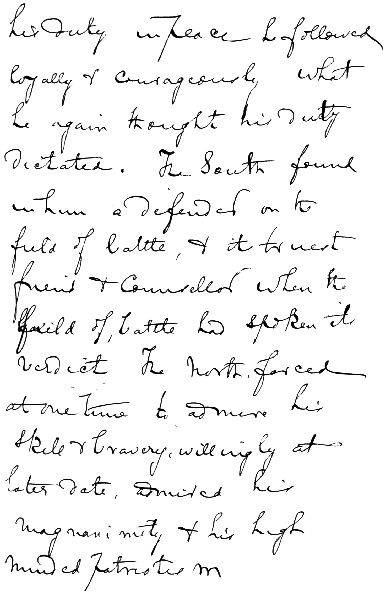 his duty in peace he followed
loyally & courageously what
he again thought his duty
dictated. The South found
in him a defender on the
field of battle, & its truest
friend & Counsellor when the
field of battle had spoken its
verdict The North, forced
at one time to admire his
skill & bravery, willingly at
later date, admired his
magnanimity & his high
minded patriotism